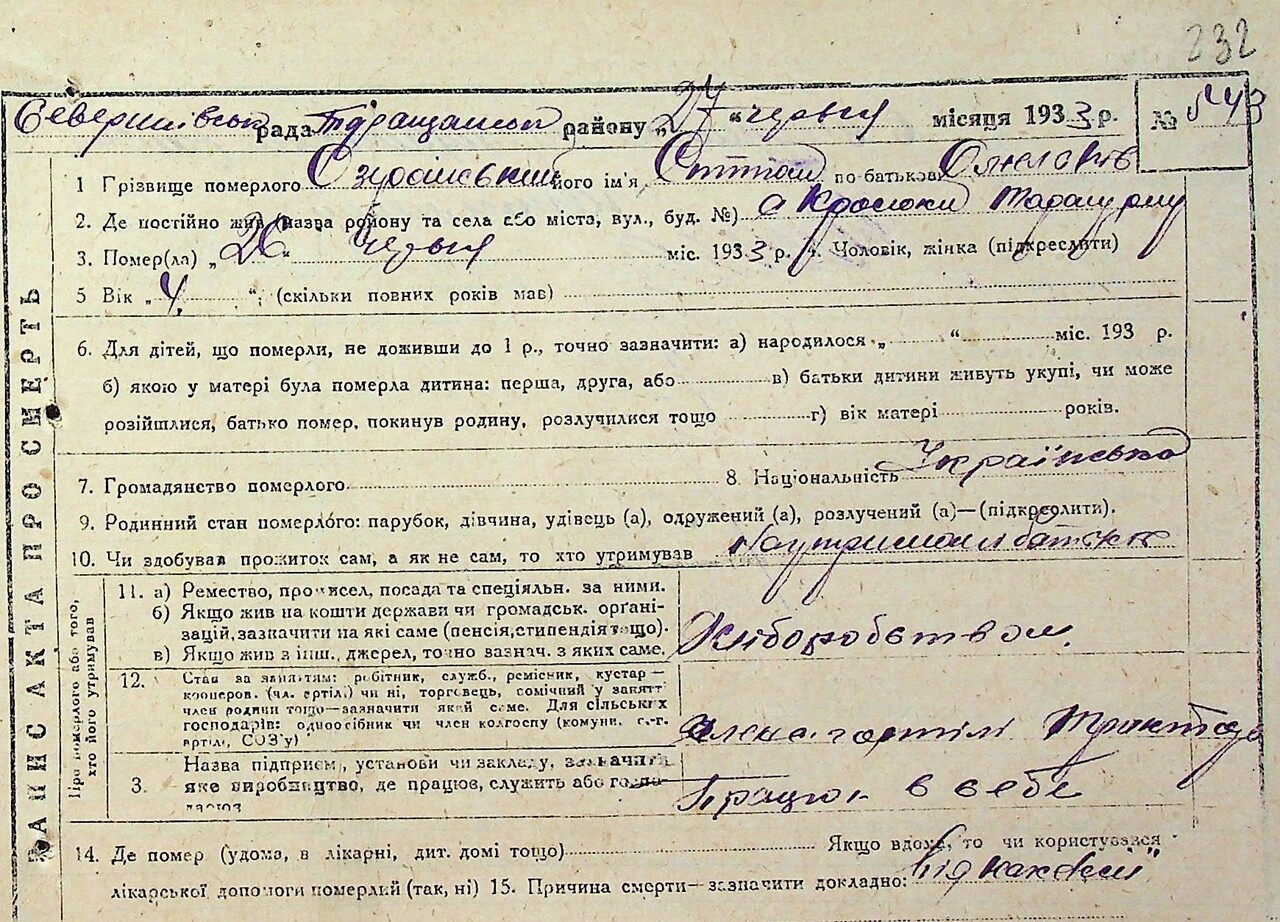 232
рада району „27“ червня місяця 1933 р. №
1 Грізвище померлого його ім'я Степан по-батькові
2. Де постійно жив (назва району та села або міста, вул., буд. №) с
3. Помер(ла) „26“ червня міс. 1933 р. 4. Чоловік, жінка (підкреслити)
5 Вік „4.“, (скільки повних років мав)
6. Для дітей, що померли, не доживши до 1 р., точно зазначити: а) народилося „ “ міс. 193 р.
б) якою у матері була померла дитина: перша, друга, або в) батьки дитини живуть укупі, чи може
розійшлися, батько помер, покинув родину, розлучилися тощо г) вік матері років.
7. Громадянство померлого 8. Національність Українська
9. Родинний стан померлого: парубок, дівчина, удівець (а), одружений (а), розлучений (а)—(підкреслити).
10. Чи здобував прожиток сам, а як не сам, то хто утримував На утриманні батьків
ЗАПИС АКТА ПРО СМЕРТЬ
Про померлого або того, хто його утримував
11. а) Ремество, промисел, посада та спеціяльн. за ними.
б) Якщо жив на кошти держави чи громадськ. органі-
зацій, зазначити на які саме (пенсія, стипендія тощо).
в) Якщо жив з інш., джерел, точно зазнач. з яких саме.
Хліборобством.
12. Стан за заняттям: робітник, служб., ремісник, кустар—
кооперов. (чл. артілі) чи ні, торговець, помічний у занятт
член родини тощо—зазначити який саме. Для сільських
господарів: одноосібник чи член колгоспу (комуни, с.-г.
артілі, СОЗ'у)
артілі
3. Назва підприєм., установи чи закладу, зазначити
яке виробництво, де працює, служить або госпо-
дарює
Працює в себе
14. Де помер (удома, в лікарні, дит. домі тощо) Якщо вдома, то чи користувався
лікарської допомоги померлий (так, ні) 15. Причина смерти—зазначити докладно: